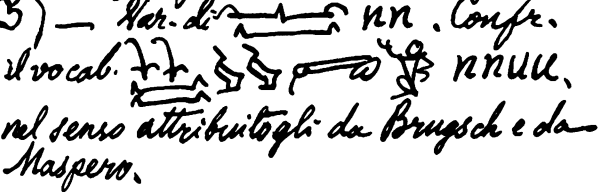 3) — Var. di nn. Confr.
il vocab. nnuu,
nel senso attribuitogli da Brugsch e da
Maspero.